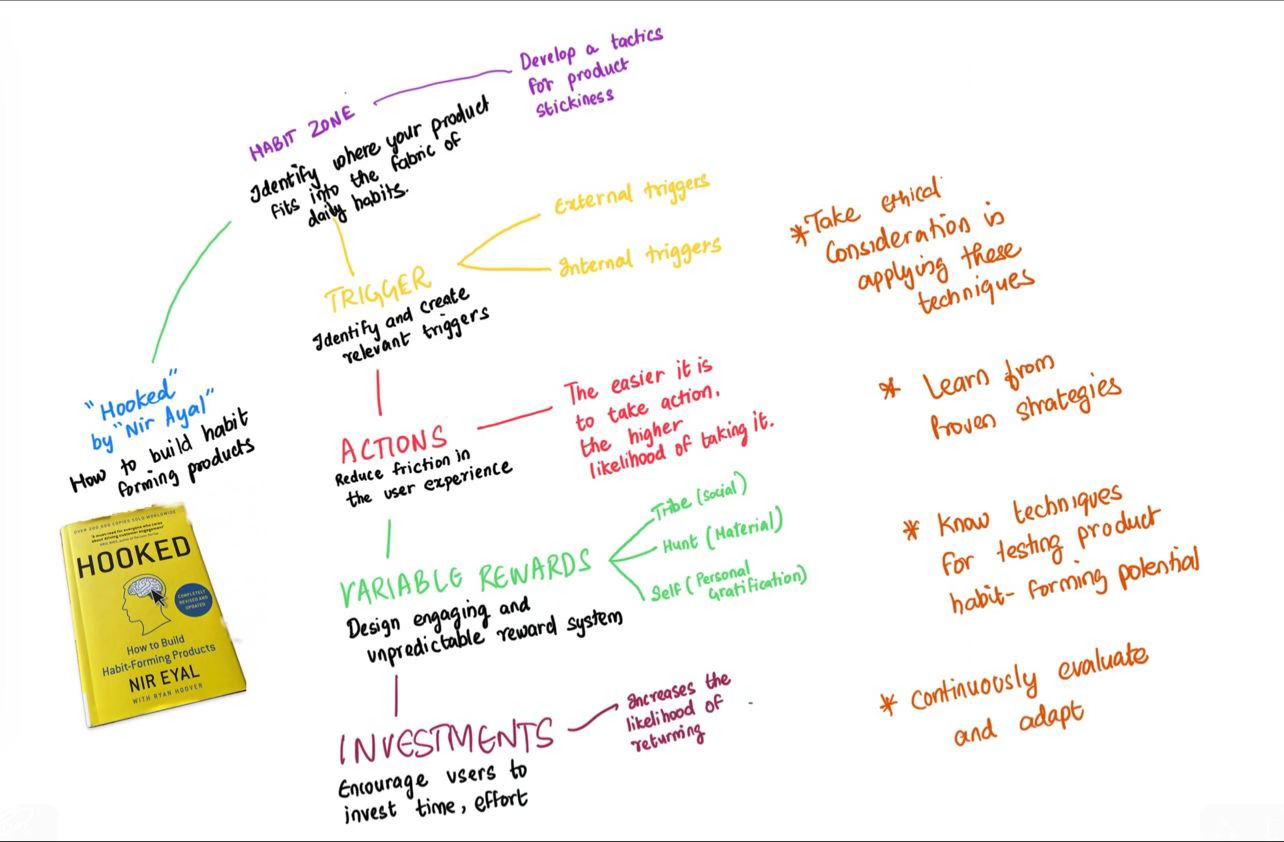 HABIT ZONE
Develop a tactics
for product
stickiness
Identify where your product
fits into the fabric of
daily habits.
TRIGGER
External triggers
Internal triggers
Identify and create
relevant triggers
"Hooked"
by "Nir Ayal"
How to build habit
forming products
OVER 200,000 COPIES SOLD WORLDWIDE
HOOKED
COMPLETELY
REVISED AND
UPDATED
How to Build
Habit-Forming Products
NIR EYAL
WITH RYAN HOOVER
ACTIONS
Reduce friction in
the user experience
The easier it is
to take action,
the higher
likelihood of taking it.
VARIABLE REWARDS
Tribe (Social)
Hunt (Material)
Self (Personal
Gratification)
Design engaging and
unpredictable reward system
INVESTMENTS
Increases the
likelihood of
returning
Encourage users to
invest time, effort
*Take ethical
consideration is
applying these
techniques
* Learn from
Proven strategies
* Know techniques
for testing product
habit-forming potential
* Continuously evaluate
and adapt